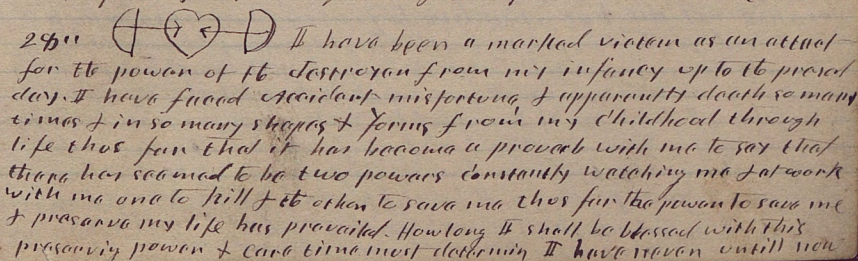 28th I have been a marked victom as an attact
for the power of the destroyer from my infancy up to the present
day. I have faced accident misfortune, & apparently death so many
times & in so many shapes & forms from my childhood through
life thus far that it has become a proverb with me to say that
there has seemed to be two powers constantly watching me & at work
with me one to kill & the other to save me thus far the power to save me
& preserve my life has prevailed. How long I shall be blessed with this
preserving power & care time must determin I have never untill now